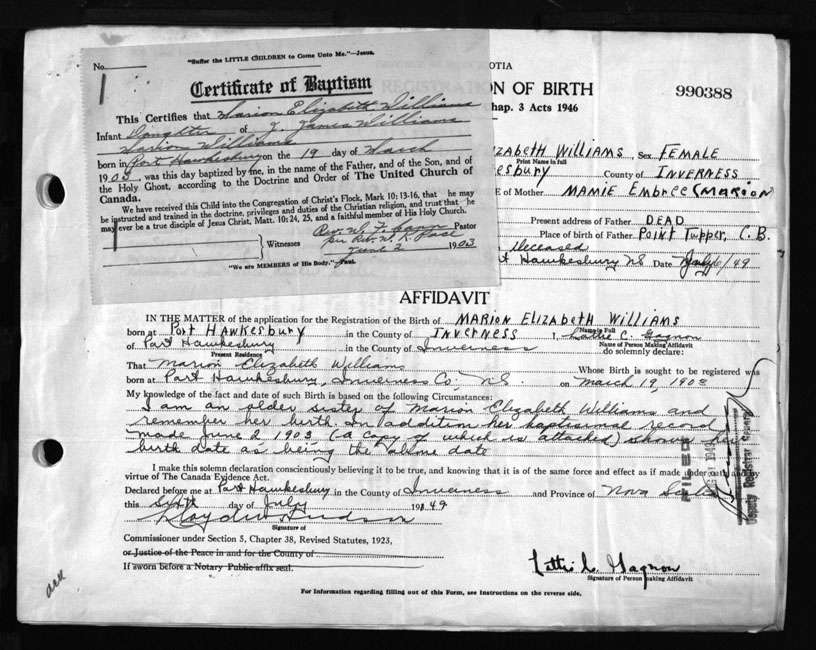 "Suffer the LITTLE CHILDREN to Come Unto Me."—Jesus.
No.
Certificate of Baptism
This Certifies that Marion Elizabeth Williams
Infant Daughter of J. James Williams
Marion Williams
born in Port Hawkesbury on the 19 day of March
1903, was this day baptized by me, in the name of the Father, and of the Son, and of
the Holy Ghost, according to the Doctrine and Order of The United Church of
Canada.
We have received this Child into the Congregation of Christ's Flock, Mark 10:13-16, that he may
be instructed and trained in the doctrine, privileges and duties of the Christian religion, and trust that he
may ever be a true disciple of Jesus Christ, Matt. 10:24, 25, and a faithful member of His Holy Church.
Rev. Pastor
per Rev. W. K.
Witnesses
June 2 1903
"We are MEMBERS of His Body."—Paul.
OTIA
REGISTRATION OF BIRTH
990388
hap. 3 Acts 1946
izabeth Williams, Sex FEMALE
Print Name in full
esbury County of INVERNESS
E of Mother MAMIE Embree (MARION)
Present address of Father DEAD
Place of birth of Father Point Tupper, C.B.
Deceased
t Hawkesbury NS Date July /49
AFFIDAVIT
IN THE MATTER of the application for the Registration of the Birth of MARION ELIZABETH WILLIAMS
Name in Full
born at Port HAWKESBURY in the County of INVERNESS I, Lattie C. Gagnon
Name of Person Making Affidavit
of Port Hawkesbury in the County of Inverness do solemnly declare:
Present Residence
That Marion Elizabeth Williams
Whose Birth is sought to be registered was
born at Port Hawkesbury, Inverness Co., N.S. on March 19, 1903
My knowledge of the fact and date of such Birth is based on the following Circumstances:
I am an older sister of Marion Elizabeth Williams and
remember her birth. In addition her baptismal record
made June 2 1903 (a copy of which is attached) shows her
birth date as being the above date
I make this solemn declaration conscientiously believing it to be true, and knowing that it is of the same force and effect as if made under oath by
virtue of The Canada Evidence Act.
Declared before me at Port Hawkesbury in the County of Inverness and Province of Nova Scotia
this Sixth day of July 1949
Signature of
Commissioner under Section 5, Chapter 38, Revised Statutes, 1923,
or Justice of the Peace in and for the County of
If sworn before a Notary Public affix seal.
Lattie C. Gagnon
Signature of Person Making Affidavit
For Information regarding filling out of this Form, see Instructions on the reverse side.
FILED
Deputy Registrar General